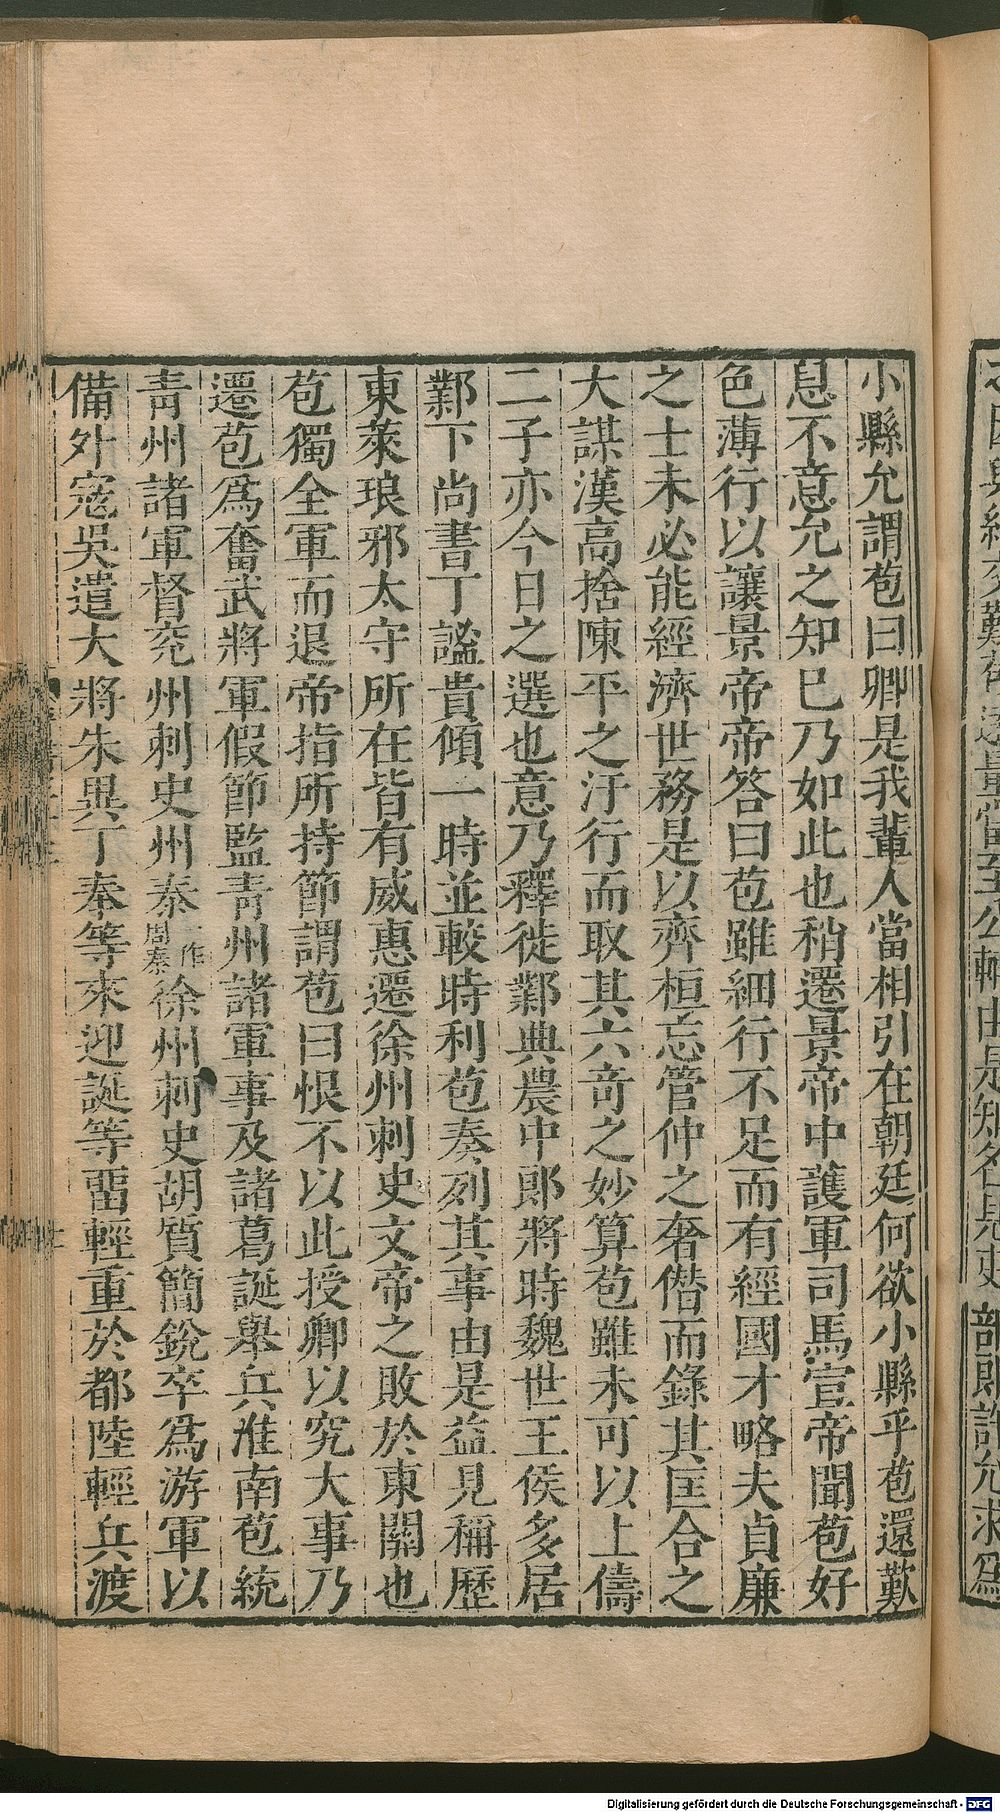 小縣允謂苞曰卿是我輩人當相引在朝廷何欲小縣乎苞還歎
息不意允之知已乃如此也稍遷景帝中護軍司馬宣帝聞苞好
色薄行以讓景帝帝答曰苞雖細行不足而有經國才略夫貞廉
之士未必能經濟世務是以齊桓忘管仲之奢僭而錄其匡合之
大謀漢高捨陳平之汙行而取其六奇之妙算苞雖未可以上儔
二子亦今日之選也意乃釋徙鄴典農中郎將時魏世王侯多居
鄴下尚書丁謐貴傾一時並較時利苞奏列其事由是益見稱歷
東萊琅邪太守所在皆有威惠遷徐州刺史文帝之敗於東關也
苞獨全軍而退帝指所持節謂苞曰恨不以此授卿以究大事乃
遷苞爲奮武將軍假節監青州諸軍事及諸葛誕舉兵淮南苞統
青州諸軍督兗州刺史州泰一作周泰徐州刺史胡質簡銳卒爲游軍以
備外寇吳遣大將朱異丁奉等來迎誕等畱輕重於都陸輕兵渡
部則許允求爲
Digitalisierung gefördert durch die Deutsche Forschungsgemeinschaft - DFG